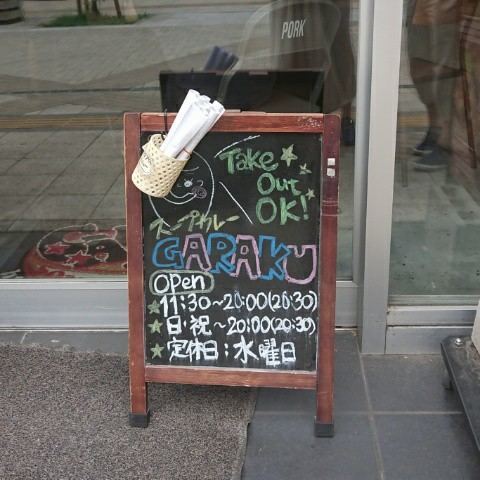 PORK
Take
Out
OK!
スープカレー
GARAKU
Open
11:30~20:00(20:30)
日・祝~20:00(20:30)
定休日:水曜日